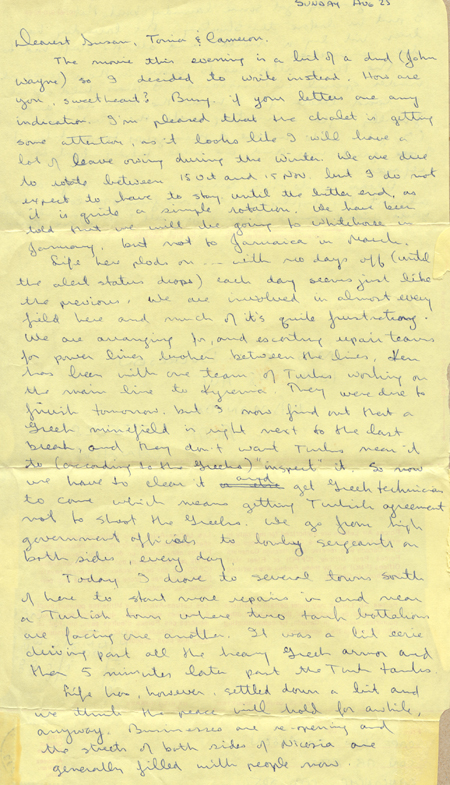 SUNDAY AUG 25
Dearest Susan, Tonia & Cameron.
The movie this evening is a bit of a dud (John
Wayne) so I decided to write instead. How are
you, sweetheart? Busy, if your letters are any
indication. I'm pleased that the chalet is getting
some attention, as it looks like I will have a
lot of leave owing during the winter. We are due
to rotate between 15 Oct and 15 Nov. but I do not
expect to have to stay until the bitter end, as
it is quite a simple rotation. We have been
told that we will be going to Whitehorse in
January, but not to Jamaica in March.
Life here plods on .... with no days off (until
the alert status drops) each day seems just like
the previous. We are involved in almost every
field here and much of it's quite frustrating.
We are arranging for, and escorting repair teams
for power lines broken between the lines. Ken
has been with one team of Turks working on
the main line to Kyrenia. They were due to
finish tomorrow, but I now find out that a
Greek minefield is right next to the last
break, and they don't want Turks near it
to (according to the Greeks) "inspect" it. So now
we have to clear it and get Greek technicians
to come which means getting Turkish agreement
not to shoot the Greeks. We go from high
government officials to lowly sergeants on
both sides, every day
Today I drove to several towns south
of here to start more repairs in and near
a Turkish town where two tank battalions
are facing one another. It was a bit eerie
driving past all the heavy Greek armor and
then 5 minutes later past the Turk tanks.
Life has, however, settled down a bit and
we think the peace will hold for awhile,
anyway. Businesses are re-opening and
the streets of both sides of Nicosia are
generally filled with people now.